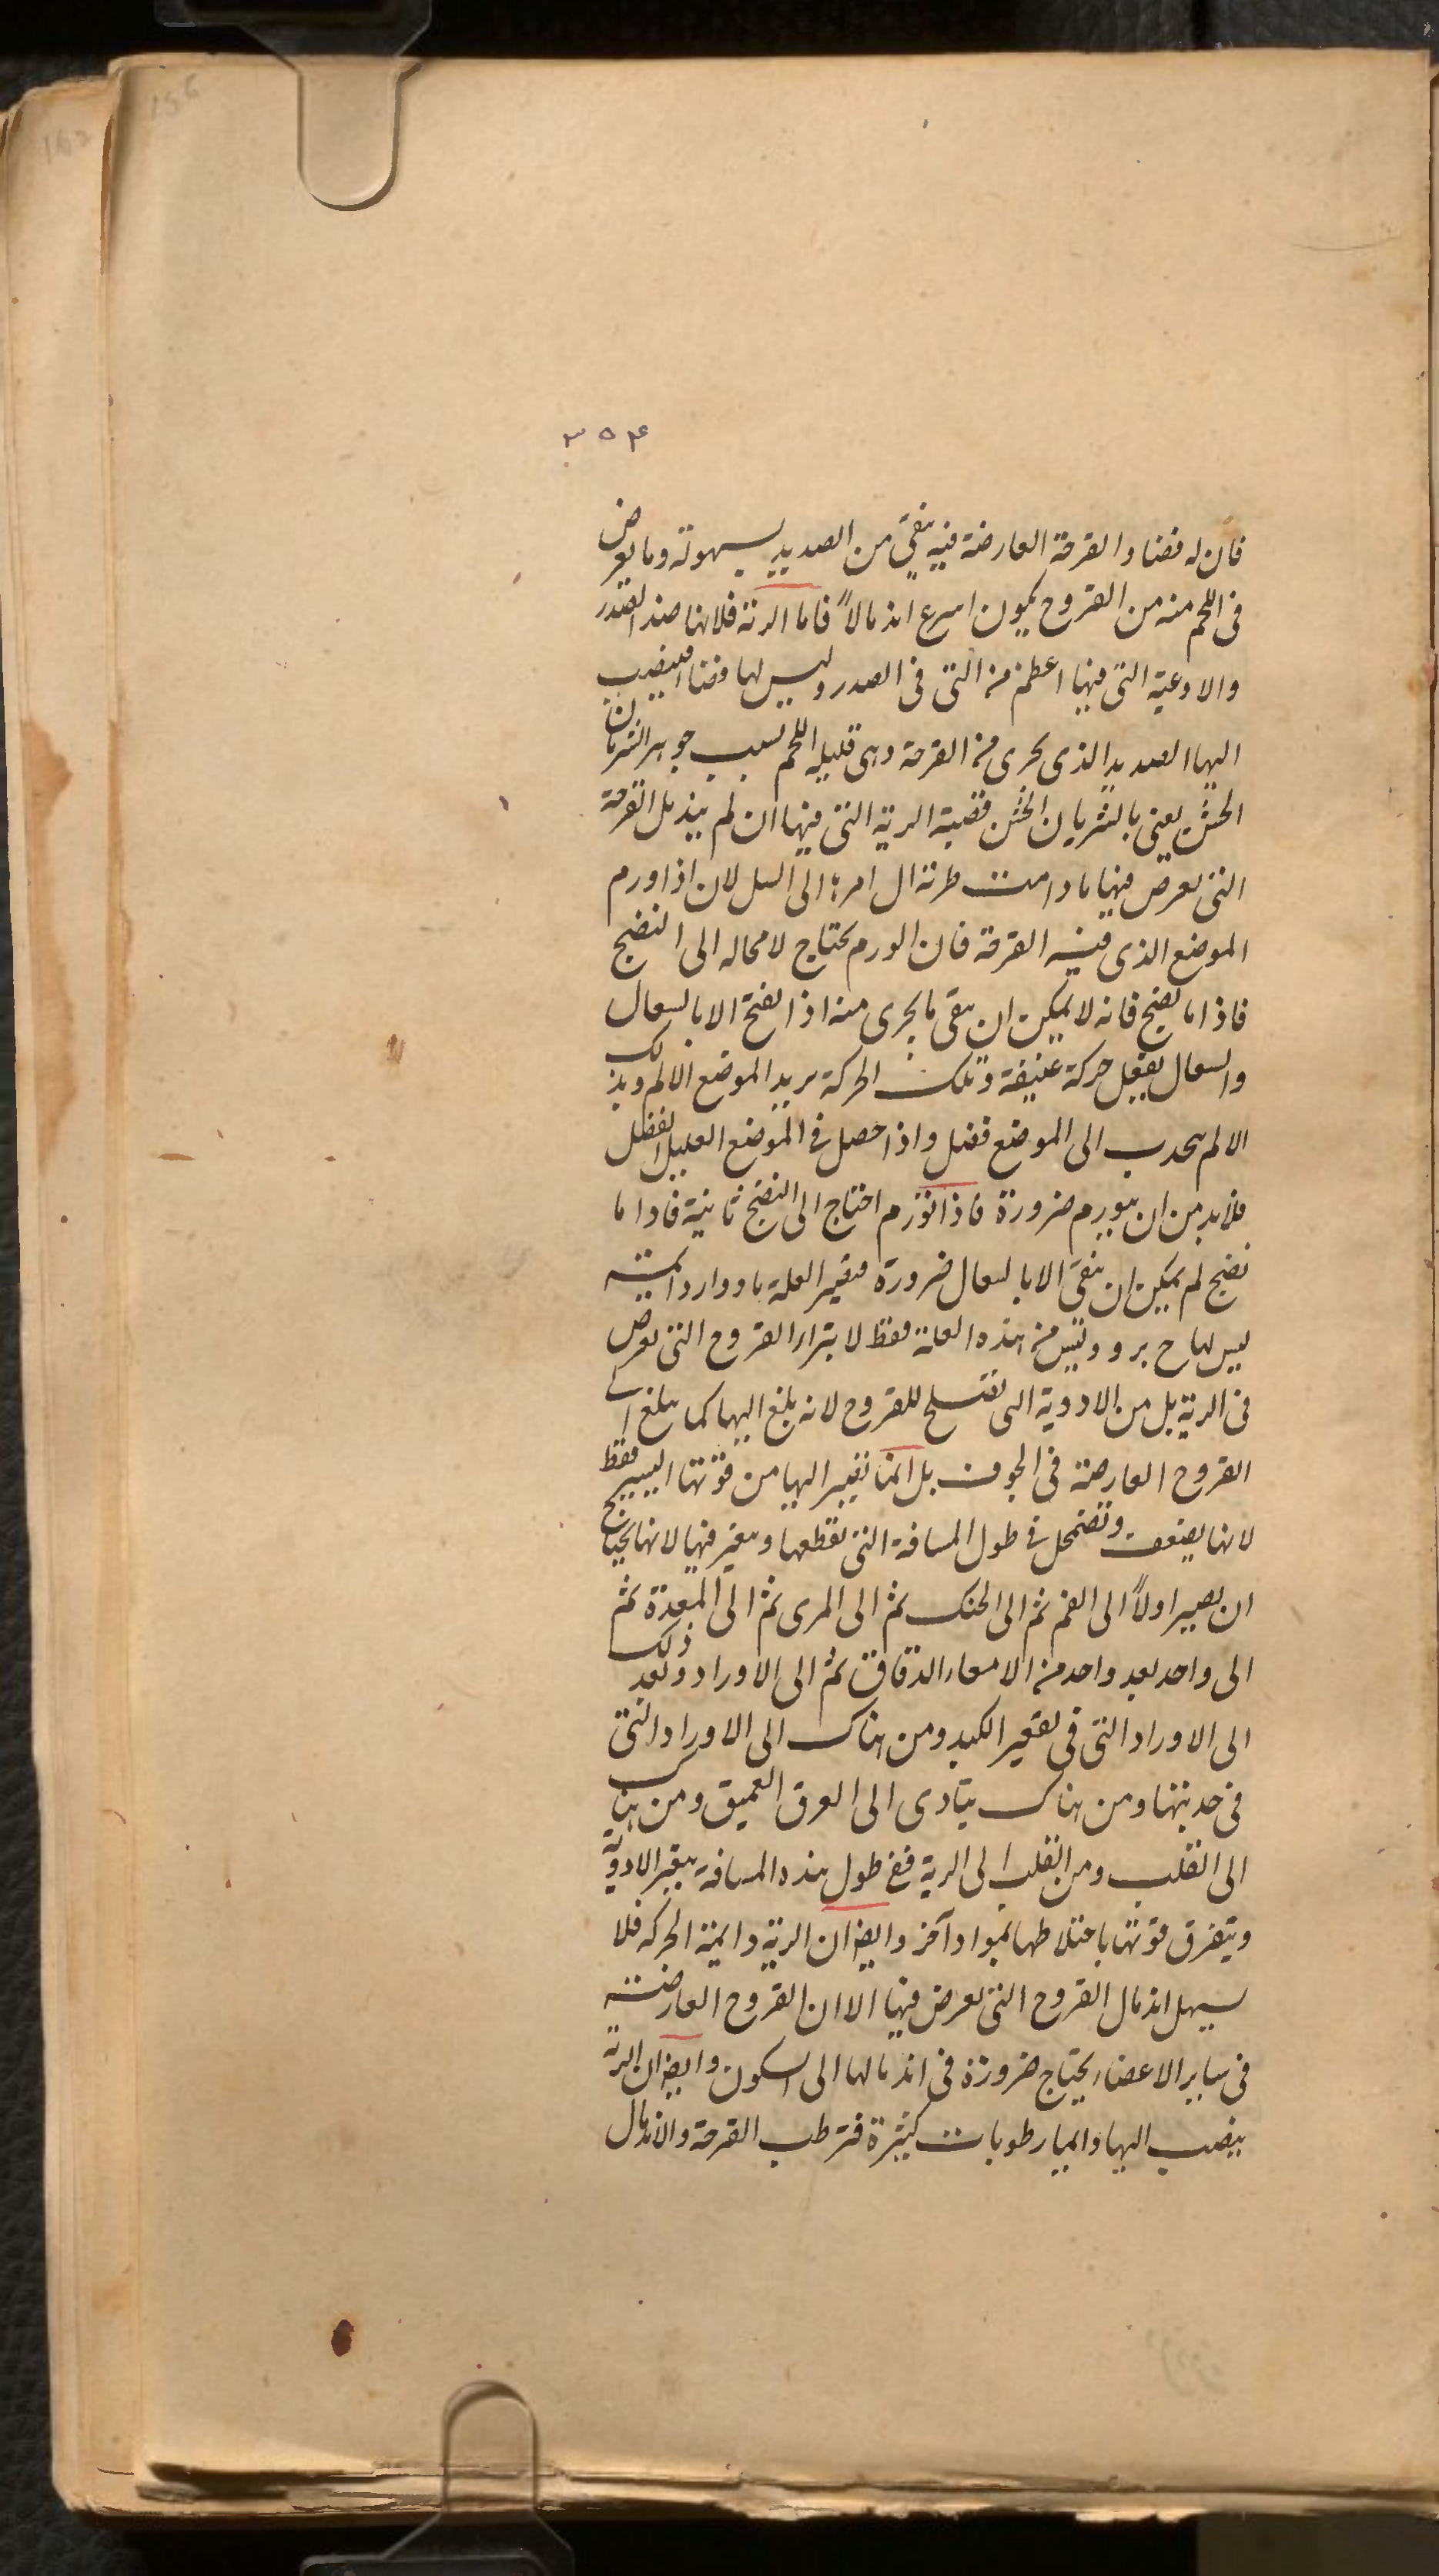 156
۳۵۴
فان له فضا والقرحة العارضة فيه ينقى من الصديد بسهولة وما يعرض
فى اللحم منه من القروح يكون اسرع اندمالاً فاما الرية فلانها ضد الصدر
والاوعية التى فيها اعظم من التى فى الصدر وليس لها فضا فينصب
اليها الصديد الذى يجرى من القرحة وهى قليله اللحم لسبب جوهر الشريان
الخشن يعنى بالشريان الخشن قصبة الرية التى فيها ان لم يندمل القرحة
التى يعرض فيها ما دامت طرية ال امرها الى السل لان اذا ورم
الموضع الذى فيه القرحة فان الورم يحتاج لا محاله الى النضج
فاذا ما نضج فانه لا يمكن ان ينقى ما يجرى منه اذا انفتح الا بالسعال
والسعال يفعل حركة عنيفة وتلك الحركة يزيد الموضع الالم وبذلك
الالم ينجدب الى الموضع فضل واذا حصل فى الموضع العليل الفضل
فلا بد من ان يتورم ضرورة فاذا تورم احتاج الى النضج ثانية فاذا ما
نضج لم يمكن ان ينقى الا بالسعال ضرورة فتصير العلة بادوار دائمة
ليس لها ح برو وليس من هذه العلة فقط لا يبرا القروح التى يعرض
فى الرية بل من الادوية التى تصلح للقروح لانه يلغ اليها كما يبلغ الى
القروح العارضة فى الجوف بل انما تصير اليها من قوتها اليسير فقط
لانها يضعف وتضمحل فى طول المسافة التى تقطعها وتتغير فيها لانها يحتاج
ان يصير اولاً الى الفم ثم الى الحنك ثم الى المرى ثم الى المعدة ثم
الى واحد بعد واحد من الامعاء الدقاق ثم الى الاوراد وبعد ذلك
الى الاوراد التى فى تقعير الكبد ومن هناك الى الاوراد التى
فى حدبتها ومن هناك يتادى الى العرق العميق ومن هناك
الى القلب ومن القلب الى الرية ففى طول هذه المسافة يتغير الادوية
ويتفرق قوتها باختلاطها بمواد آخر وايضا ان الرية دائمة الحركه فلا
يسهل اندمال القروح التى يعرض فيها الا ان القروح العارضة
فى ساير الاعضاء يحتاج ضرورة فى اندمالها الى السكون وايضا ان الرية
ينصب اليها دائما رطوبات كثيرة فترطب القرحة والاندمال